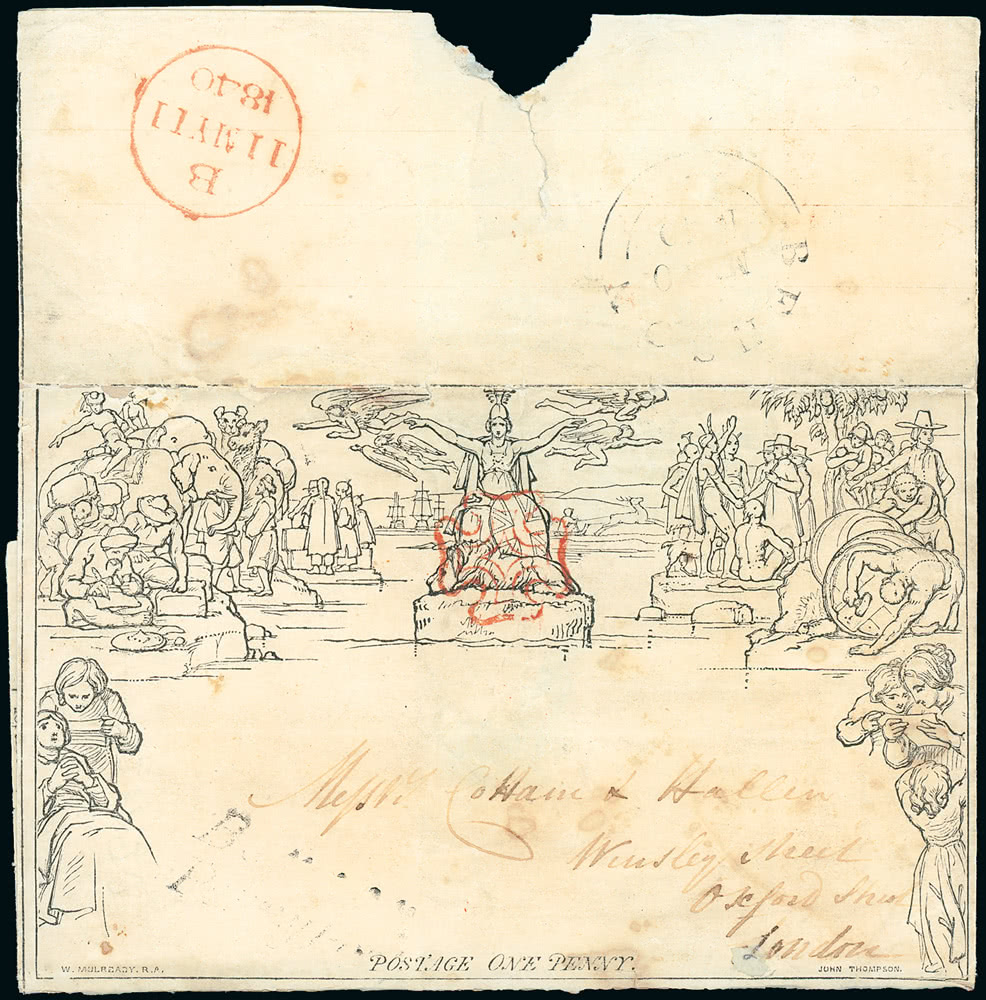 B
11 MY 11
1840
Messrs. Cottam & Hallen
Winsley Street
Oxford Street
London
POSTAGE ONE PENNY.
W. MULREADY. R.A.
JOHN THOMPSON.